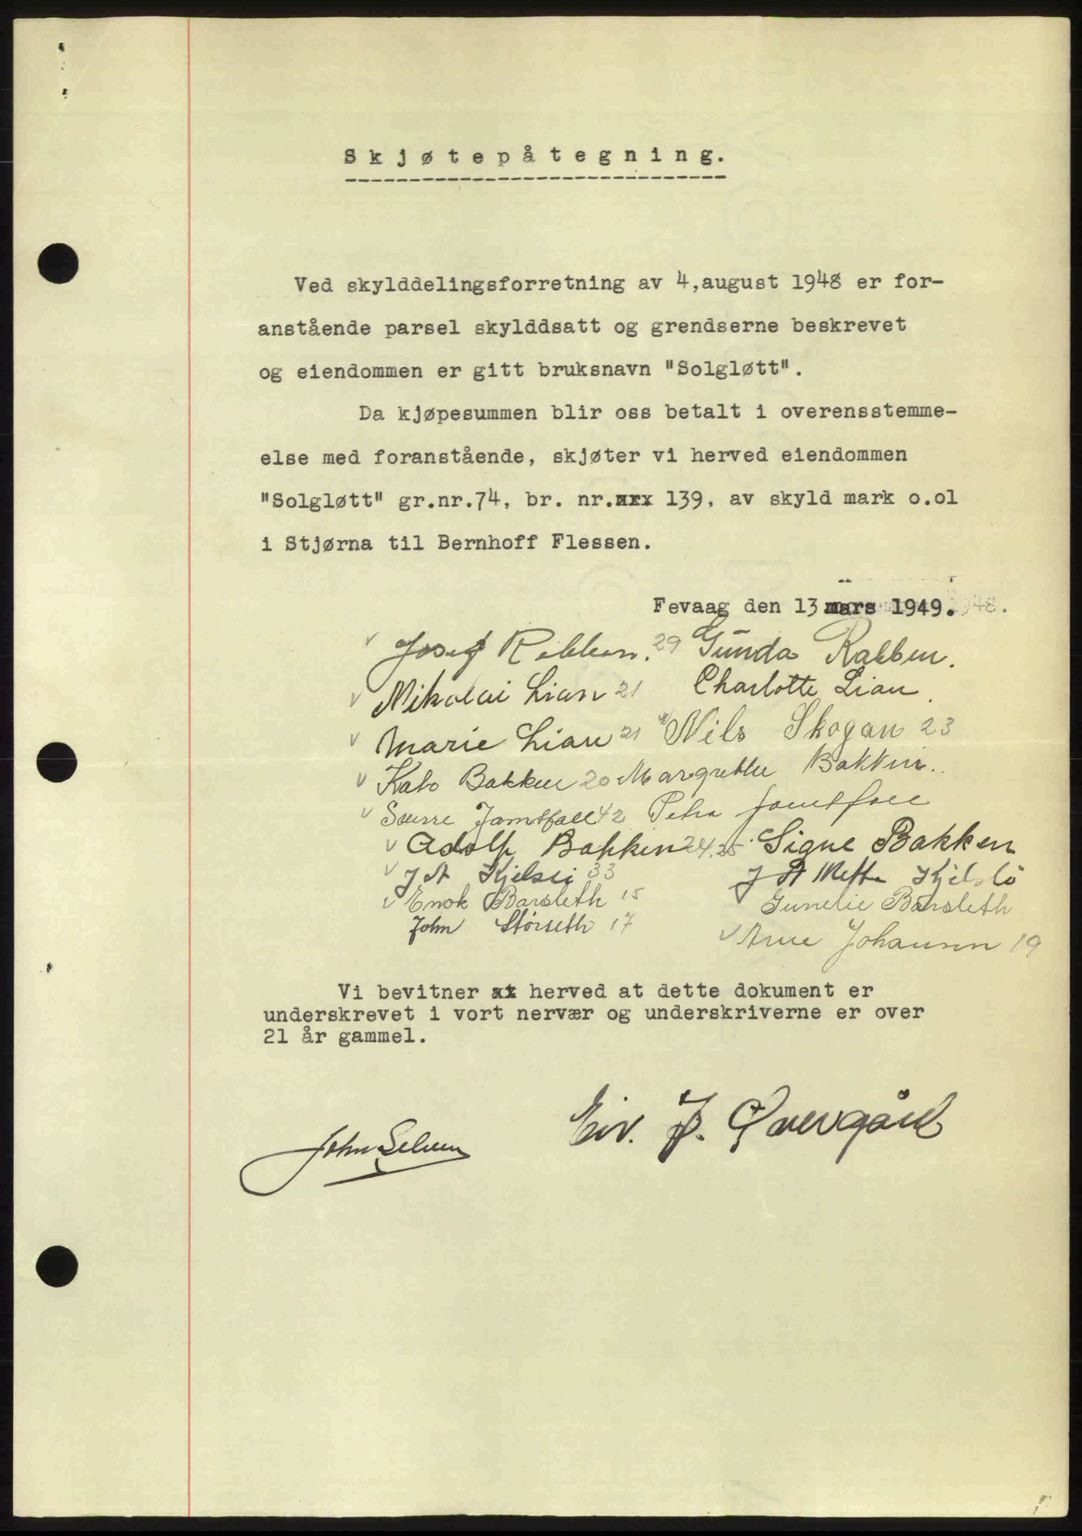 Skjøtepåtegning.
Ved skylddelingsforretning av 4,august 1948 er for-
anstående parsel skylddsatt og grendserne beskrevet
og eiendommen er gitt bruksnavn "Solgløtt".
Da kjøpesummen blir oss betalt i overensstemme-
else med foranstående, skjøter vi herved eiendommen
"Solgløtt" gr.nr.74, br. nr.xxx 139, av skyld mark o.ol
i Stjørna til Bernhoff Flessen.
Fevaag den 13 mars 1949. 1948.
Josef Rabben. 29 Gunda Rabben.
Mikolai Lian 21 Charlotte Lian.
Marie Lian 21 Nils Skogan 23
Kato Bakken 20 Margrethe Bakken.
42 Petra Jamtfall
Adolf Bakken 24,25. Signe Bakken
J A 33 J A
Enok Barsleth 15 Barsleth
John Størseth 17 Arne Johansen 19
Vi bevitner at herved at dette dokument er
underskrevet i vort nervær og underskriverne er over
21 år gammel.
John Selven Eiv. J. Overgård